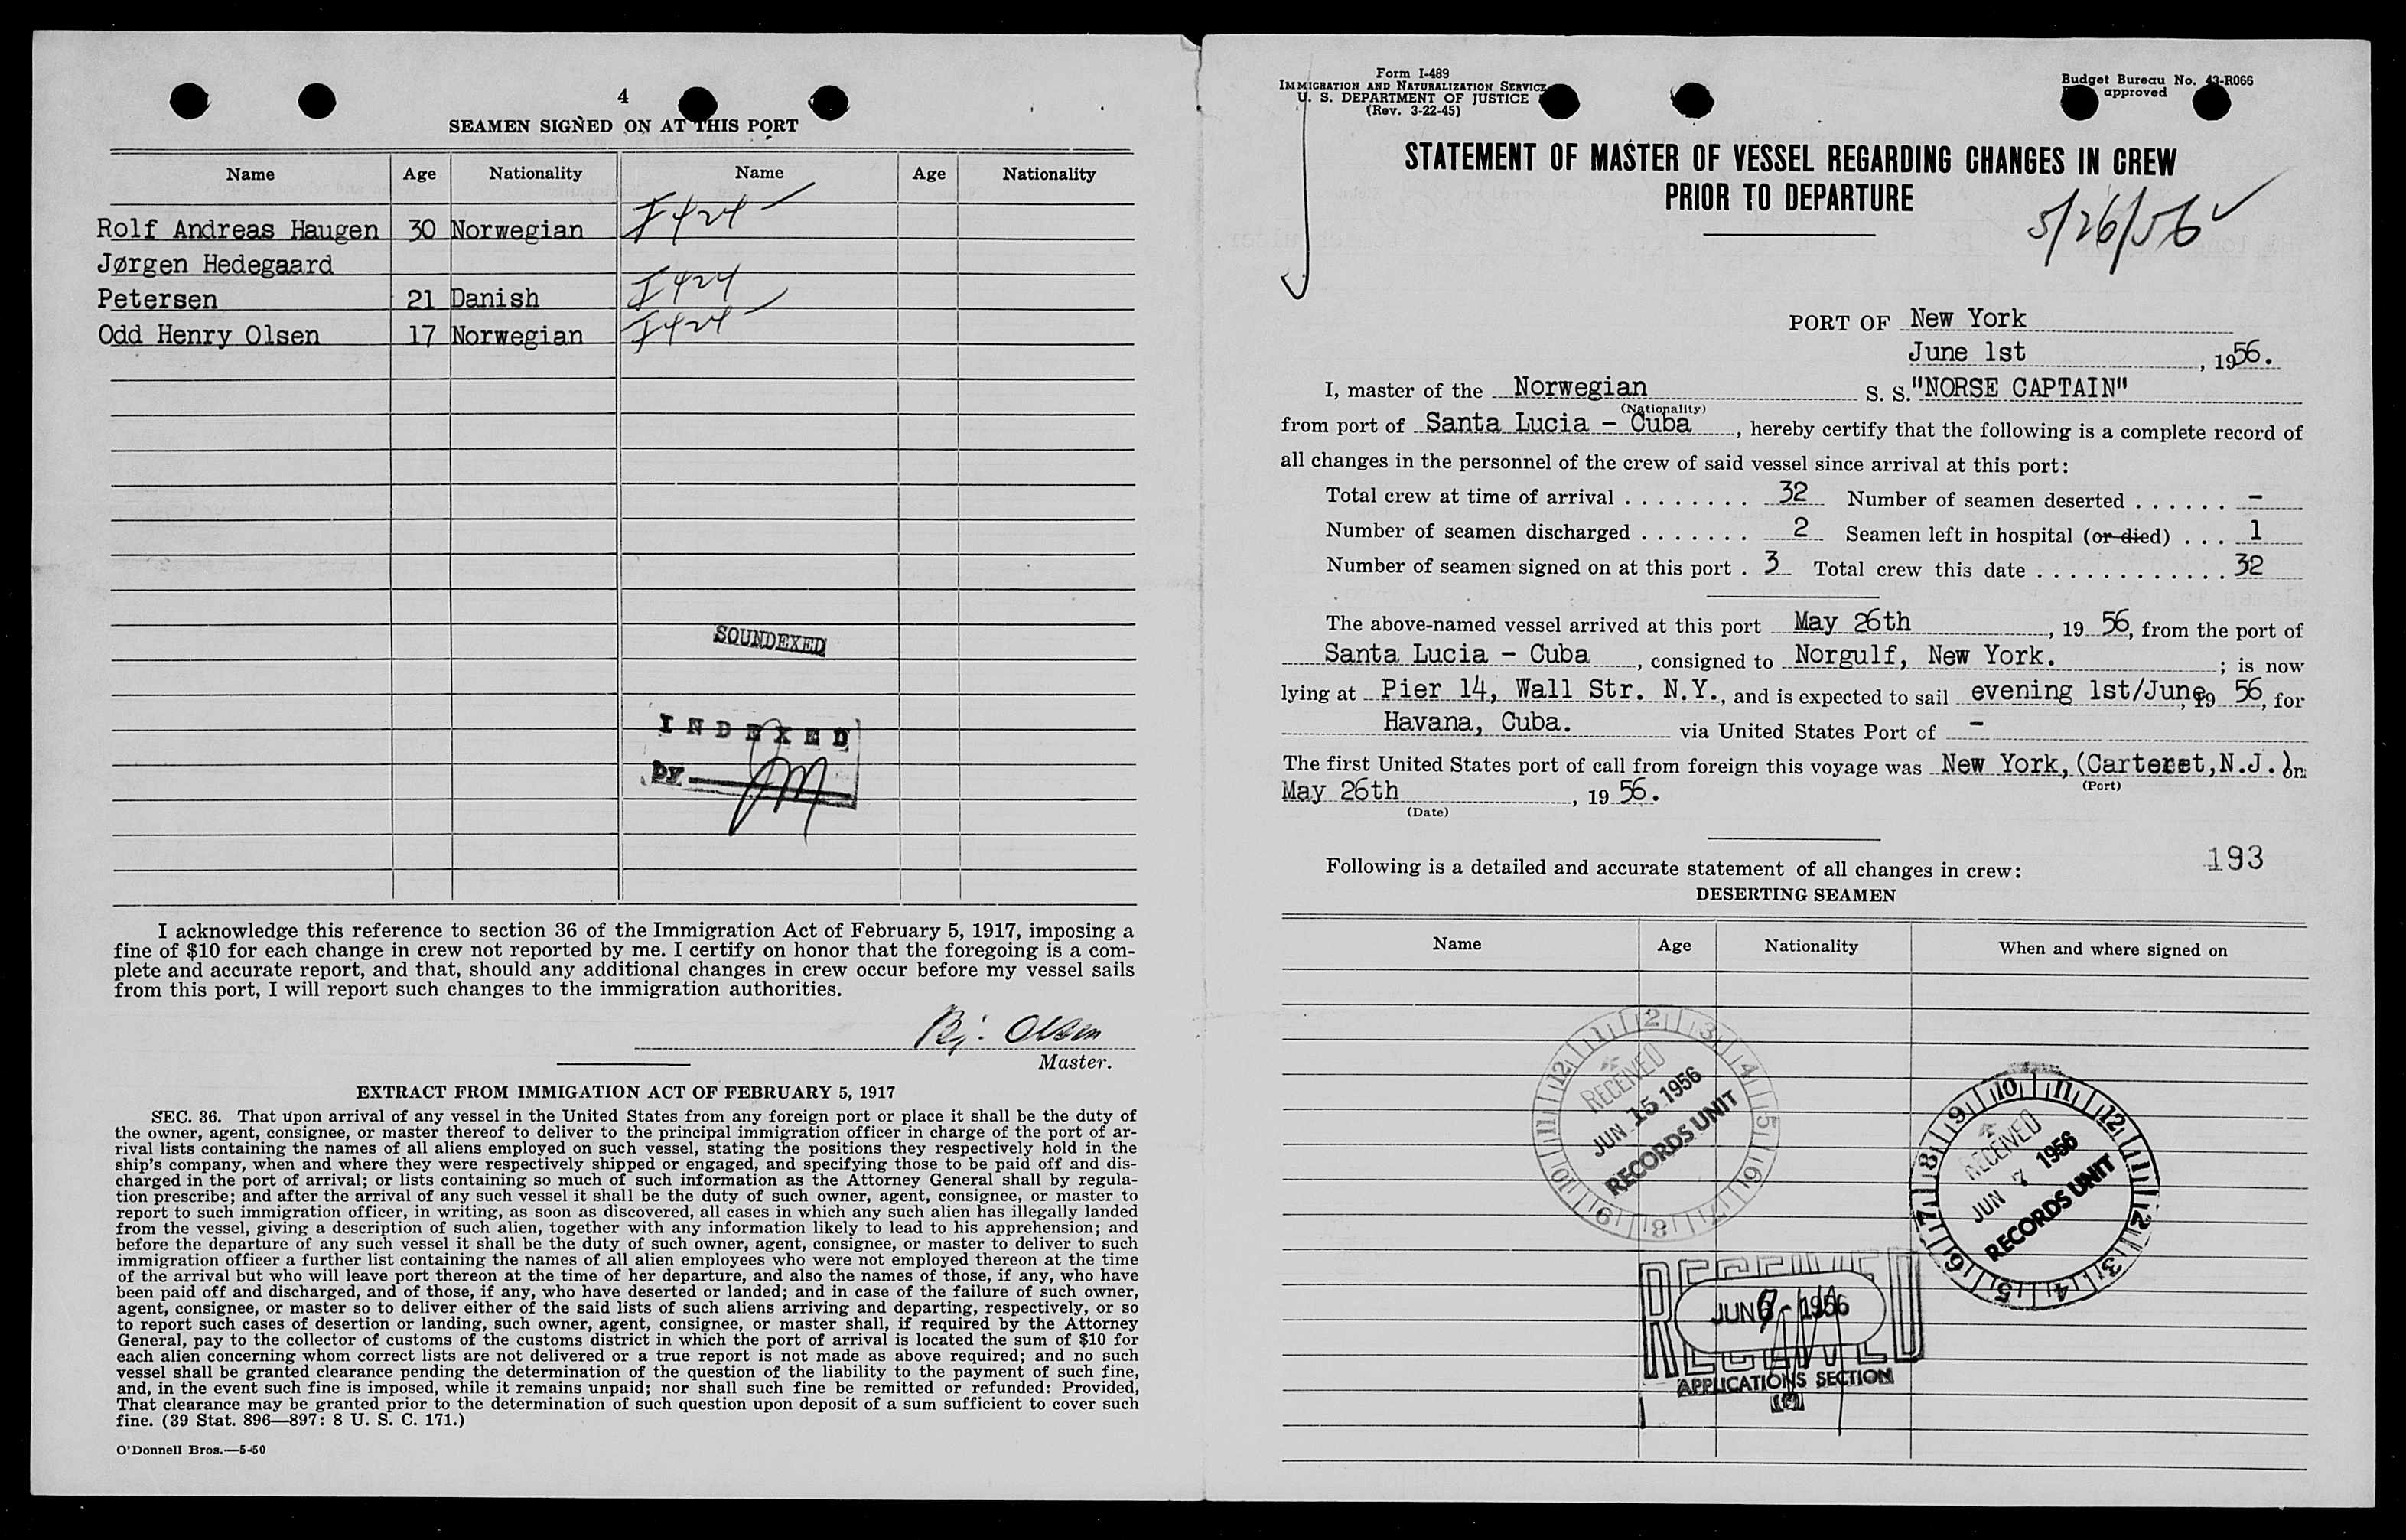 4
SEAMEN SIGNED ON AT THIS PORT
Name Age Nationality Name Age Nationality
Rolf Andreas Haugen 30 Norwegian I424
Jørgen Hedegaard
Petersen 21 Danish I424
Odd Henry Olsen 17 Norwegian I424
SOUNDEXED
INDEXED
by JM
I acknowledge this reference to section 36 of the Immigration Act of February 5, 1917, imposing a
fine of $10 for each change in crew not reported by me. I certify on honor that the foregoing is a com-
plete and accurate report, and that, should any additional changes in crew occur before my vessel sails
from this port, I will report such changes to the immigration authorities.
Bj. Olsen
Master.
EXTRACT FROM IMMIGATION ACT OF FEBRUARY 5, 1917
SEC. 36. That upon arrival of any vessel in the United States from any foreign port or place it shall be the duty of
the owner, agent, consignee, or master thereof to deliver to the principal immigration officer in charge of the port of ar-
rival lists containing the names of all aliens employed on such vessel, stating the positions they respectively hold in the
ship's company, when and where they were respectively shipped or engaged, and specifying those to be paid off and dis-
charged in the port of arrival; or lists containing so much of such information as the Attorney General shall by regula-
tion prescribe; and after the arrival of any such vessel it shall be the duty of such owner, agent, consignee, or master to
report to such immigration officer, in writing, as soon as discovered, all cases in which any such alien has illegally landed
from the vessel, giving a description of such alien, together with any information likely to lead to his apprehension; and
before the departure of any such vessel it shall be the duty of such owner, agent, consignee, or master to deliver to such
immigration officer a further list containing the names of all alien employees who were not employed thereon at the time
of the arrival but who will leave port thereon at the time of her departure, and also the names of those, if any, who have
been paid off and discharged, and of those, if any, who have deserted or landed; and in case of the failure of such owner,
agent, consignee, or master so to deliver either of the said lists of such aliens arriving and departing, respectively, or so
to report such cases of desertion or landing, such owner, agent, consignee, or master shall, if required by the Attorney
General, pay to the collector of customs of the customs district in which the port of arrival is located the sum of $10 for
each alien concerning whom correct lists are not delivered or a true report is not made as above required; and no such
vessel shall be granted clearance pending the determination of the question of the liability to the payment of such fine,
and, in the event such fine is imposed, while it remains unpaid; nor shall such fine be remitted or refunded: Provided,
That clearance may be granted prior to the determination of such question upon deposit of a sum sufficient to cover such
fine. (39 Stat. 896—897: 8 U. S. C. 171.)
O'Donnell Bros.—5-50
Form I-489
IMMIGRATION AND NATURALIZATION SERVICE
U. S. DEPARTMENT OF JUSTICE
(Rev. 3-22-45)
Budget Bureau No. 43-R066
approved
STATEMENT OF MASTER OF VESSEL REGARDING CHANGES IN CREW
PRIOR TO DEPARTURE
5/26/56
PORT OF New York
June 1st, 1956.
I, master of the Norwegian S. S. "NORSE CAPTAIN"
(Nationality)
from port of Santa Lucia - Cuba, hereby certify that the following is a complete record of
all changes in the personnel of the crew of said vessel since arrival at this port:
Total crew at time of arrival ........ 32 Number of seamen deserted ...... -
Number of seamen discharged ....... 2 Seamen left in hospital (or died) ... 1
Number of seamen signed on at this port . 3 Total crew this date ............ 32
The above-named vessel arrived at this port May 26th, 19 56, from the port of
Santa Lucia - Cuba, consigned to Norgulf, New York. ; is now
lying at Pier 14, Wall Str. N.Y., and is expected to sail evening 1st/June, 19 56, for
Havana, Cuba. via United States Port of -
The first United States port of call from foreign this voyage was New York, (Carteret, N.J.) on
(Port)
May 26th, 19 56.
(Date)
193
Following is a detailed and accurate statement of all changes in crew:
DESERTING SEAMEN
Name Age Nationality When and where signed on
RECEIVED
JUN 15 1956
RECORDS UNIT
RECEIVED
JUN 7 1956
RECORDS UNIT
RECEIVED
JUN 6 1956
APPLICATIONS SECTION